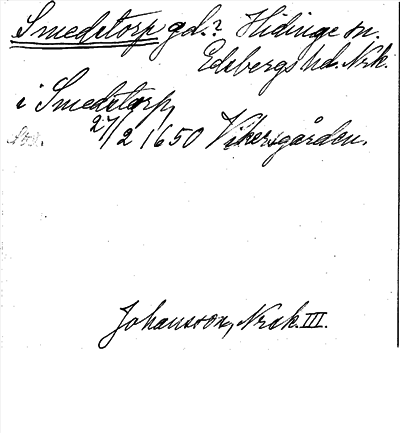 Smedstorp gd.? Hidinge sn.
Edsbergs hd. Nrk.
i Smedstorp
27/2 1650 Vikersgården.
Johansson, Nrsk. III.